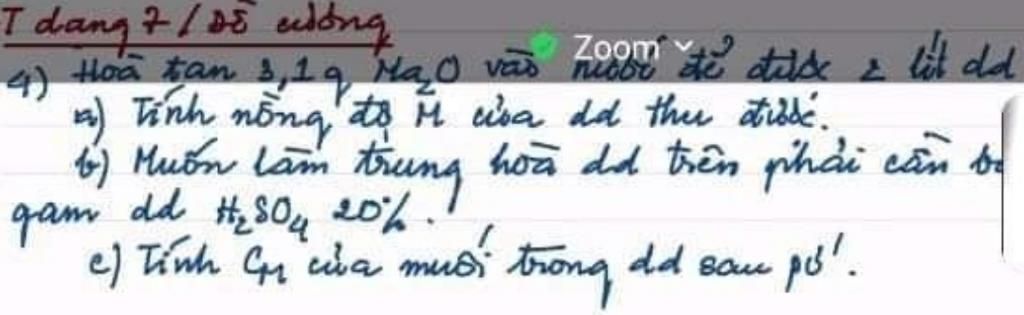 T dạng 7 / Đề cương
Zoom
4) Hoà tan 3,1 g Na2O vào nước để được 2 lít dd
a) Tính nồng độ M của dd thu được.
b) Muốn làm trung hoà dd trên phải cần b
gam dd H2SO4 20%.
c) Tính CM của muối trong dd sau pứ.